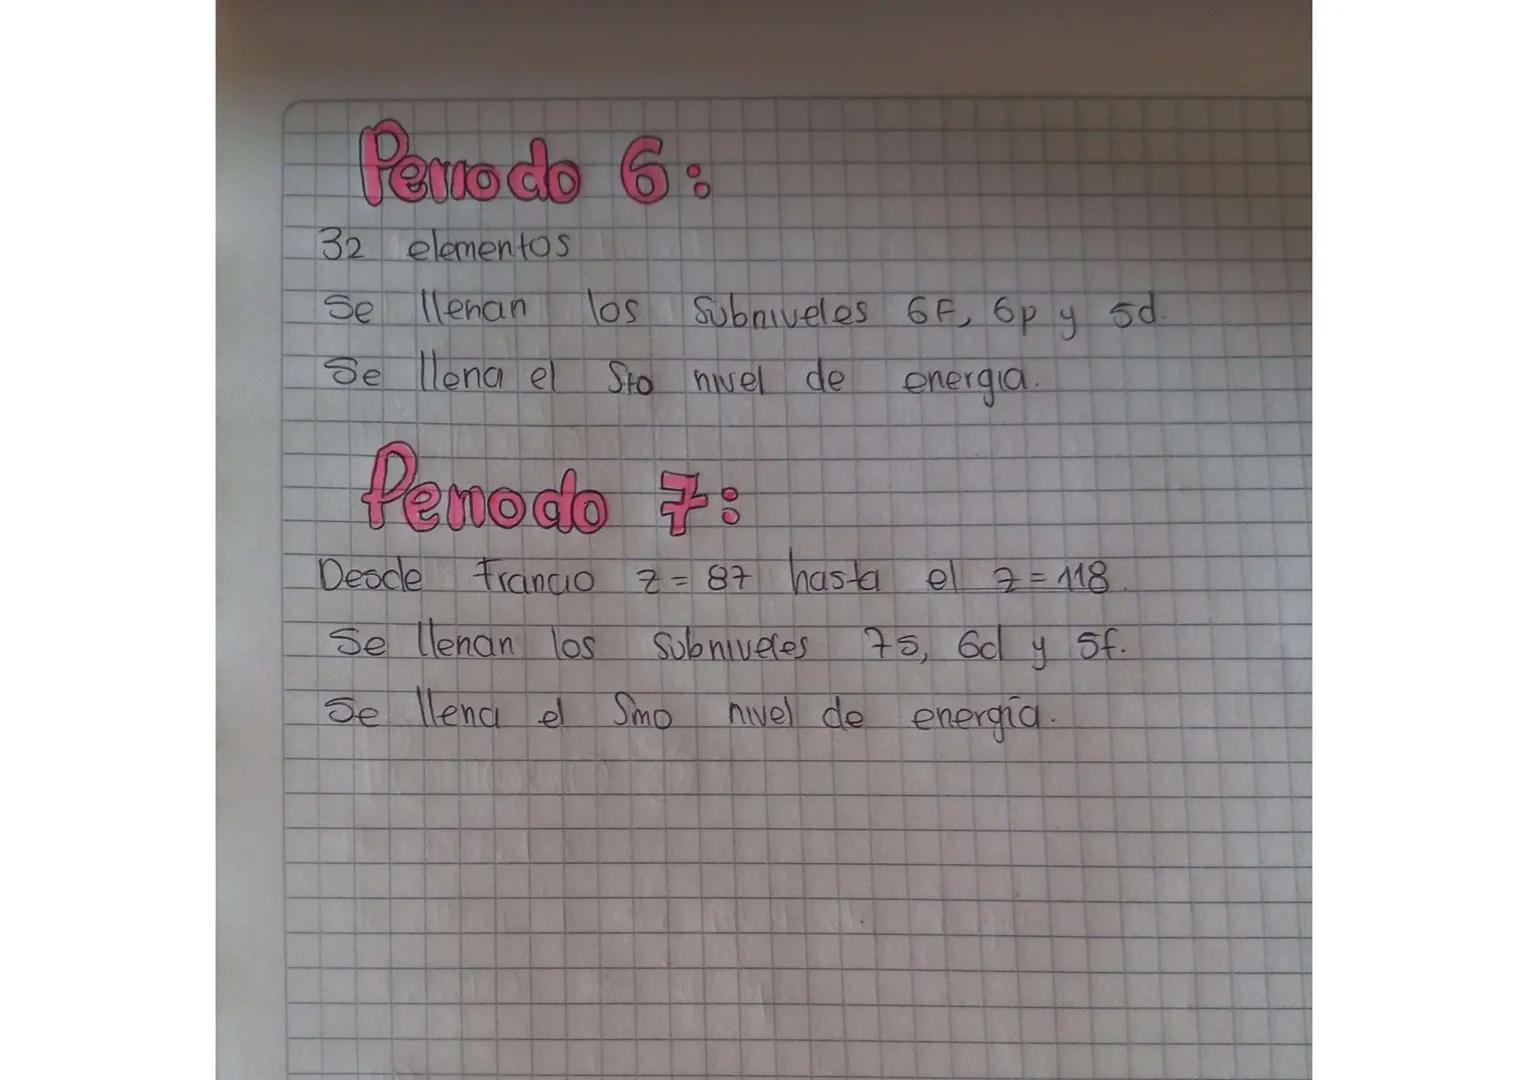 Periodo 6:
32 elementos
Se llenan los subniveles 6F, 6p y 5d.
Se llena el 5to nivel de energia.
Periodo 7:
Desde francio z = 87 hasta el z = 118.
Se llenan los subniveles 7s, 6d y 5f.
Se llena el 5mo nivel de energía.